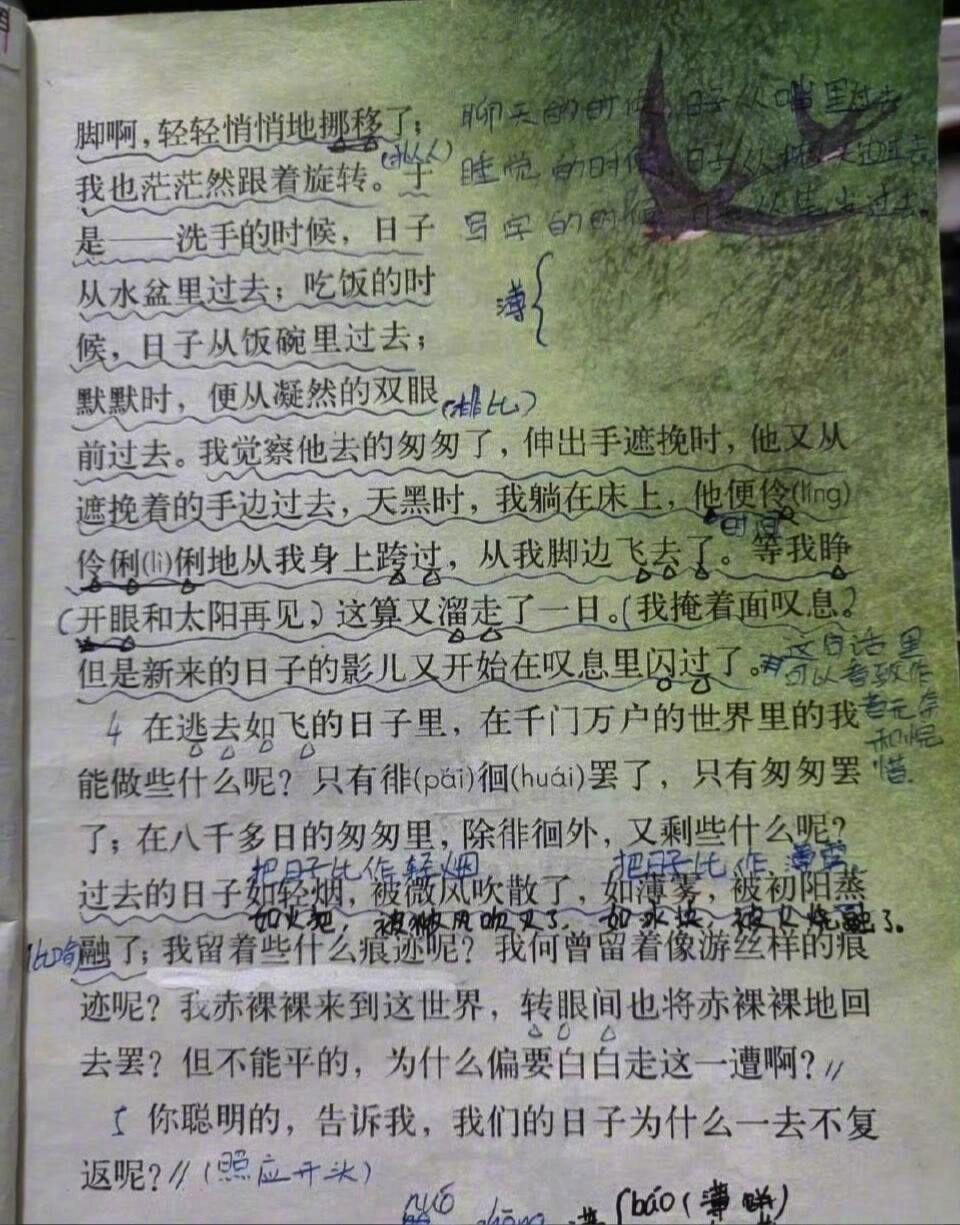 聊天的时候,日子从嘴里过去
脚啊,轻轻悄悄地挪移了;
(拟人)
睡觉的时候,日子从枕边过去
我也茫茫然跟着旋转。于
写字的时候 日子从笔尖过去。
是——洗手的时候,日子
从水盆里过去;吃饭的时
薄{
候,日子从饭碗里过去;
默默时,便从凝然的双眼
(排比)
前过去。我觉察他去的匆匆了,伸出手遮挽时,他又从
遮挽着的手边过去,天黑时,我躺在床上,他便伶(líng)
时间
伶俐(lì)俐地从我身上跨过,从我脚边飞去了。等我睁
(开眼和太阳再见,)这算又溜走了一日。(我掩着面叹息。
但是新来的日子的影儿又开始在叹息里闪过了。
这句话里
可以看出作
者无奈
和惋
惜.
4 在逃去如飞的日子里,在千门万户的世界里的我
能做些什么呢?只有徘(pái)徊(huái)罢了,只有匆匆罢
了;在八千多日的匆匆里,除徘徊外,又剩些什么呢?
把日子比作轻烟 把日子比作薄雾
过去的日子如轻烟,被微风吹散了,如薄雾,被初阳蒸
如火把,被微风吹灭了,如冰块,被火烧融了。
比喻
融了;我留着些什么痕迹呢?我何曾留着像游丝样的痕
迹呢?我赤裸裸来到这世界,转眼间也将赤裸裸地回
去罢?但不能平的,为什么偏要白白走这一遭啊?//
5 你聪明的,告诉我,我们的日子为什么一去不复
返呢?//(照应开头)
nuó
薄{báo(薄饼)